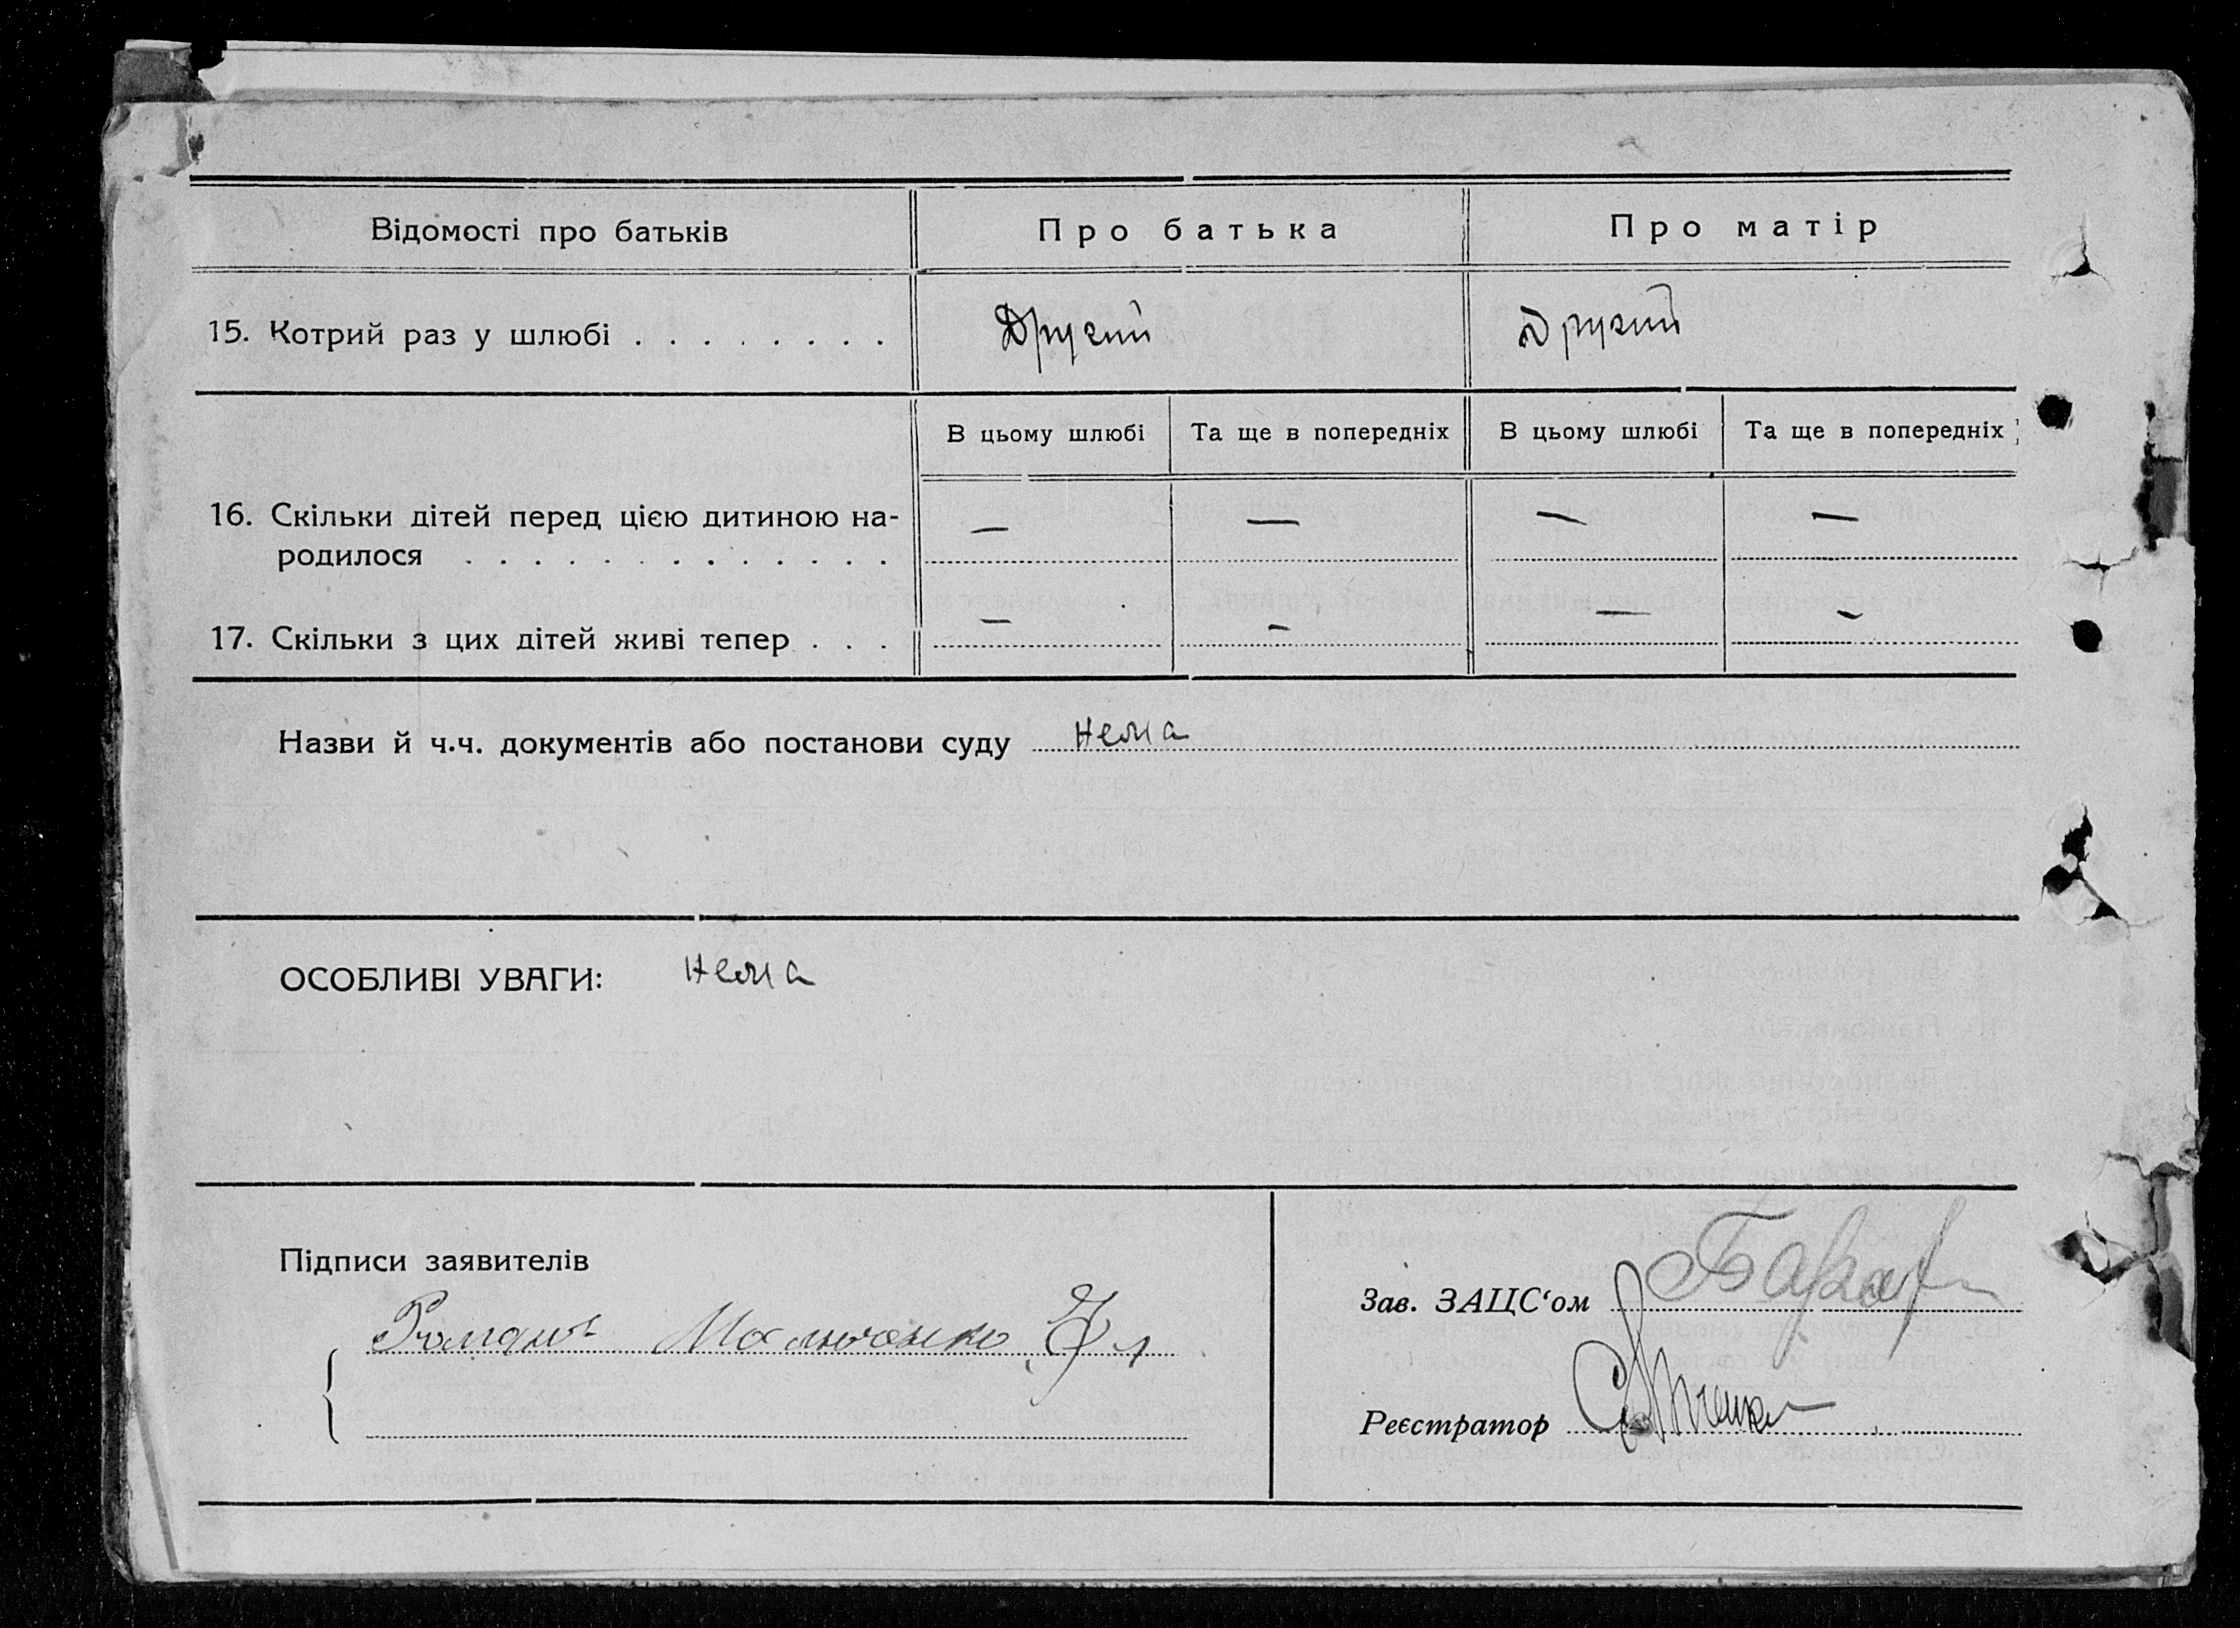 Відомості про батьків
Про батька
Про матір
15. Котрий раз у шлюбі . . . . . . . .
Другий
Другий
В цьому шлюбі
Та ще в попередніх
В цьому шлюбі
Та ще в попередніх
16. Скільки дітей перед цією дитиною на-
родилося . . . . . . . . . . . . .
— — — —
17. Скільки з цих дітей живі тепер . . .
— — — —
Назви й ч.ч. документів або постанови суду нема
ОСОБЛИВІ УВАГИ: нема
Підписи заявителів
Зав. ЗАЦС‘ом
Реєстратор